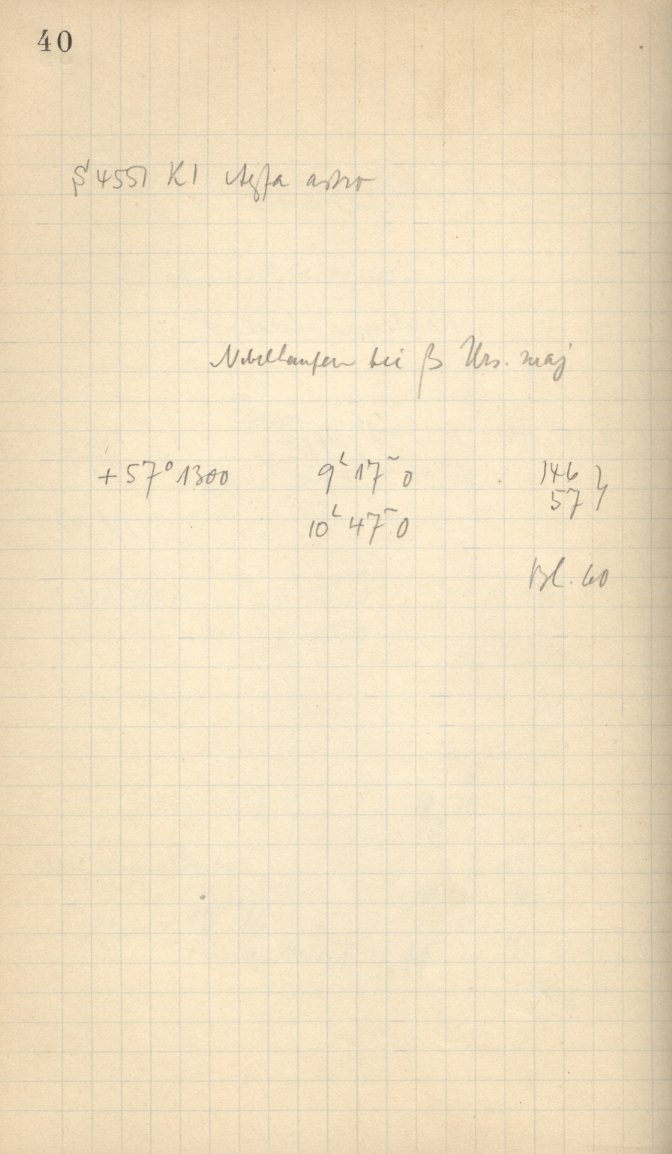 40
4551 K1 Agfa astro
Nebelhaufen bei β Urs. maj
+57° 1300 9ʰ 17ᵐ 0 146 }
10ʰ 47ᵐ 0 57 }
Bl. 60